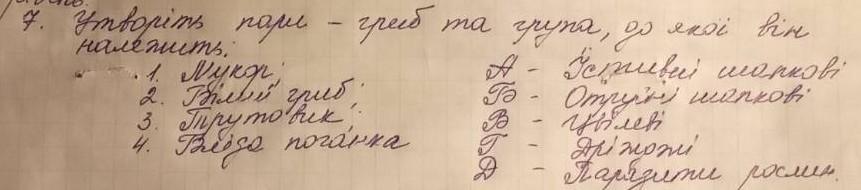 7. Утворіть пари – гриб та група, до якої він
належить:
1. Мукор;
2. Білий гриб;
3. Трутовик;
4. Бліда поганка
А – Їстивні шапкові
Б – Отруйні шапкові
В – Цвілеві
Г – Дріжджі
Д – Паразити рослин.